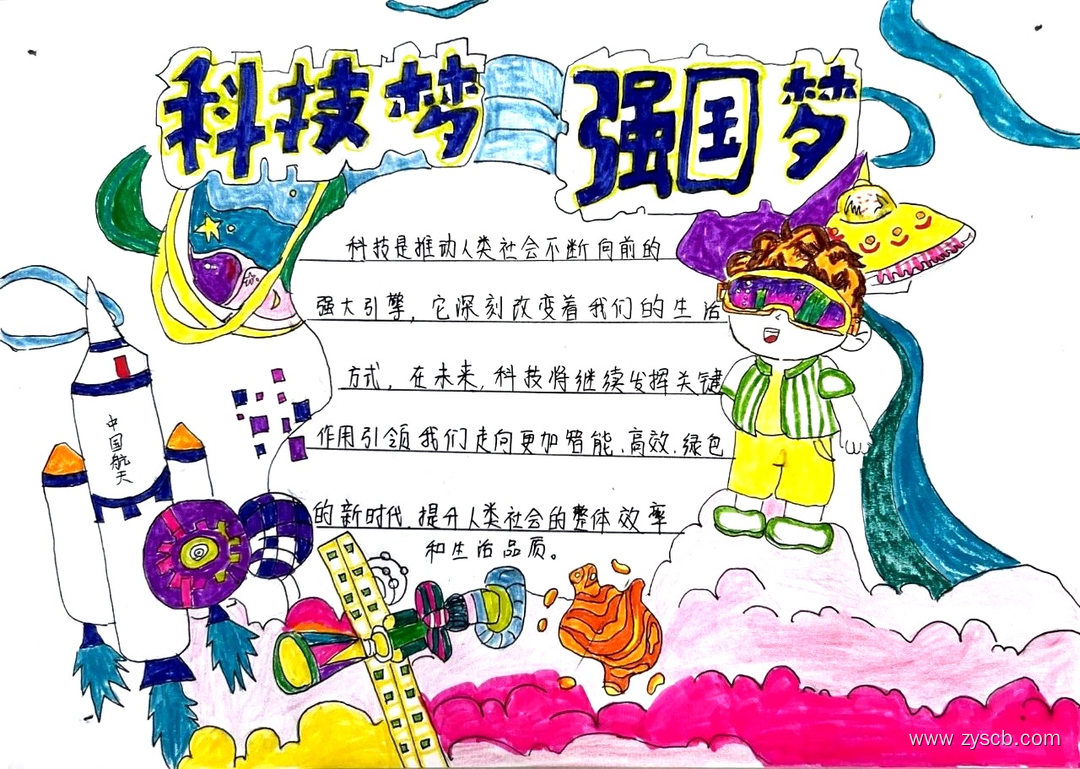 科技梦 强国梦
科技是推动人类社会不断向前的
强大引擎，它深刻改变着我们的生活
方式，在未来，科技将继续发挥关键
作用引领我们走向更加智能、高效、绿色
的新时代，提升人类社会的整体效率
和生活品质。
中国航天
www.zyscb.com